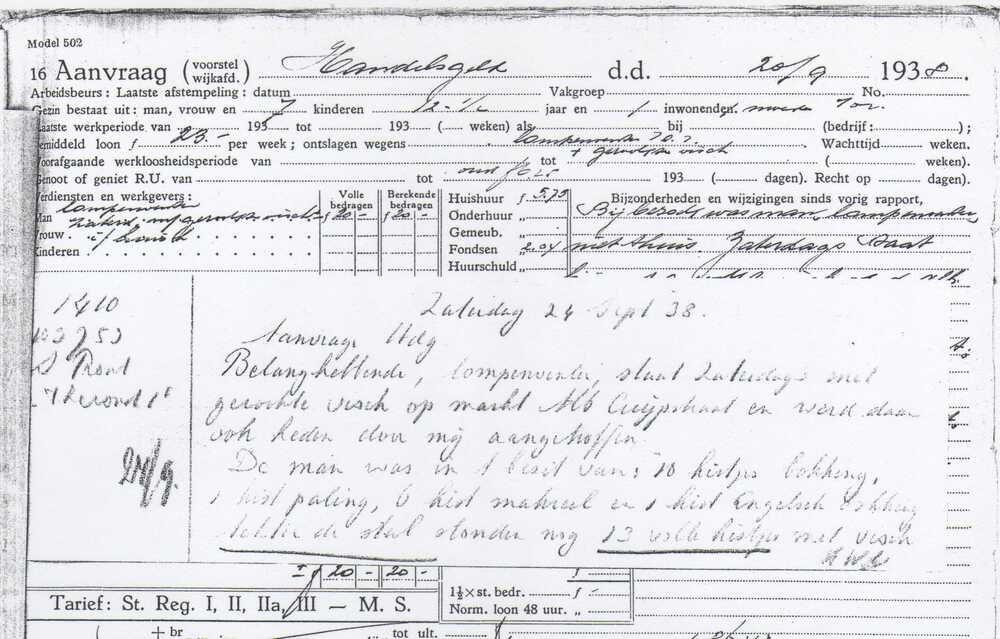 Model 502
16 Aanvraag (voorstel wijkafd.) Handelsgeld d.d. 20/9 1938.
Arbeidsbeurs: Laatste afstempeling: datum Vakgroep No.
Gezin bestaat uit: man, vrouw en 7 kinderen 12-1/2 jaar en 1 inwonenden
Laatste werkperiode van 193 tot 193 ( weken) als lompenventer bij (bedrijf: );
Gemiddeld loon f 23.- per week; ontslagen wegens + gerookte visch Wachttijd weken.
Voorafgaande werkloosheidsperiode van tot ( weken).
Genoot of geniet R.U. van tot 193 ( dagen). Recht op dagen).
Verdiensten en werkgevers: Volle bedragen Berekende bedragen Huishuur f 5.75 Bijzonderheden en wijzigingen sinds vorig rapport,
lompenventer
Man Zaterd. m/ gerookte visch f 20 - f 20 - Onderhuur „ Bij bezoek was man, lompenventer,
Vrouw Gemeub. „
Kinderen Fondsen „ 2.04 niet thuis. Zaterdags staat
Huurschuld „
1410
Zaterdag 24 Sept 38.
Aanvrage Hdg
Belanghebbende, lompenventer, staat Zaterdags met
gerookte visch op markt Alb Cuijpstraat en werd daar
ook heden door mij aangetroffen.
De man was in 't bezit van: 10 kistjes bokking,
1 kist paling, 6 kist makreel en 1 kist Engelsch bokking
achter de stal stonden nog 13 volle kistjes met visch
24/9.
f 20 - 20 -
1½ × st. bedr. f -
Tarief: St. Reg. I, II, IIa, III — M. S. Norm. loon 48 uur. „
+ br tot ult.